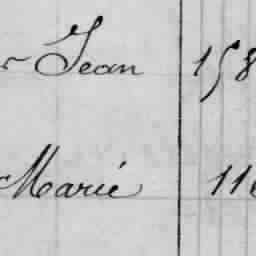 Jean 158
Marié 116